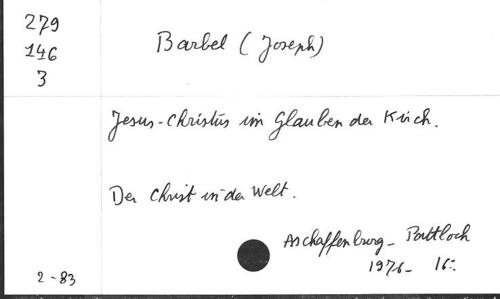 279
146
3
Barbel (Joseph)
Jesus-Christus im Glauben der Kirch.
Der Christ in der Welt.
Aschaffenburg - Pattloch
1976 - 16:
2-83